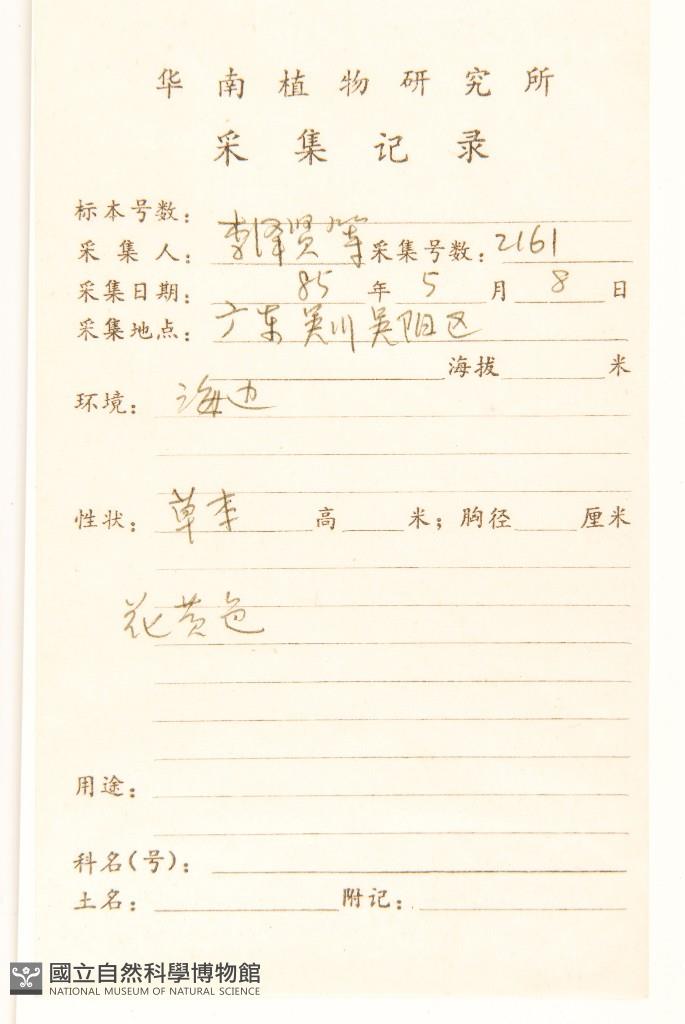 华南植物研究所
采集记录
标本号数：
采集人：李泽贤等 采集号数：2161
采集日期：85年5月8日
采集地点：广东吴川吴阳区
海拔 米
环境：海边
性状：草本 高 米；胸径 厘米
花黄色
用途：
科名(号)：
土名： 附记：
國立自然科學博物館
NATIONAL MUSEUM OF NATURAL SCIENCE